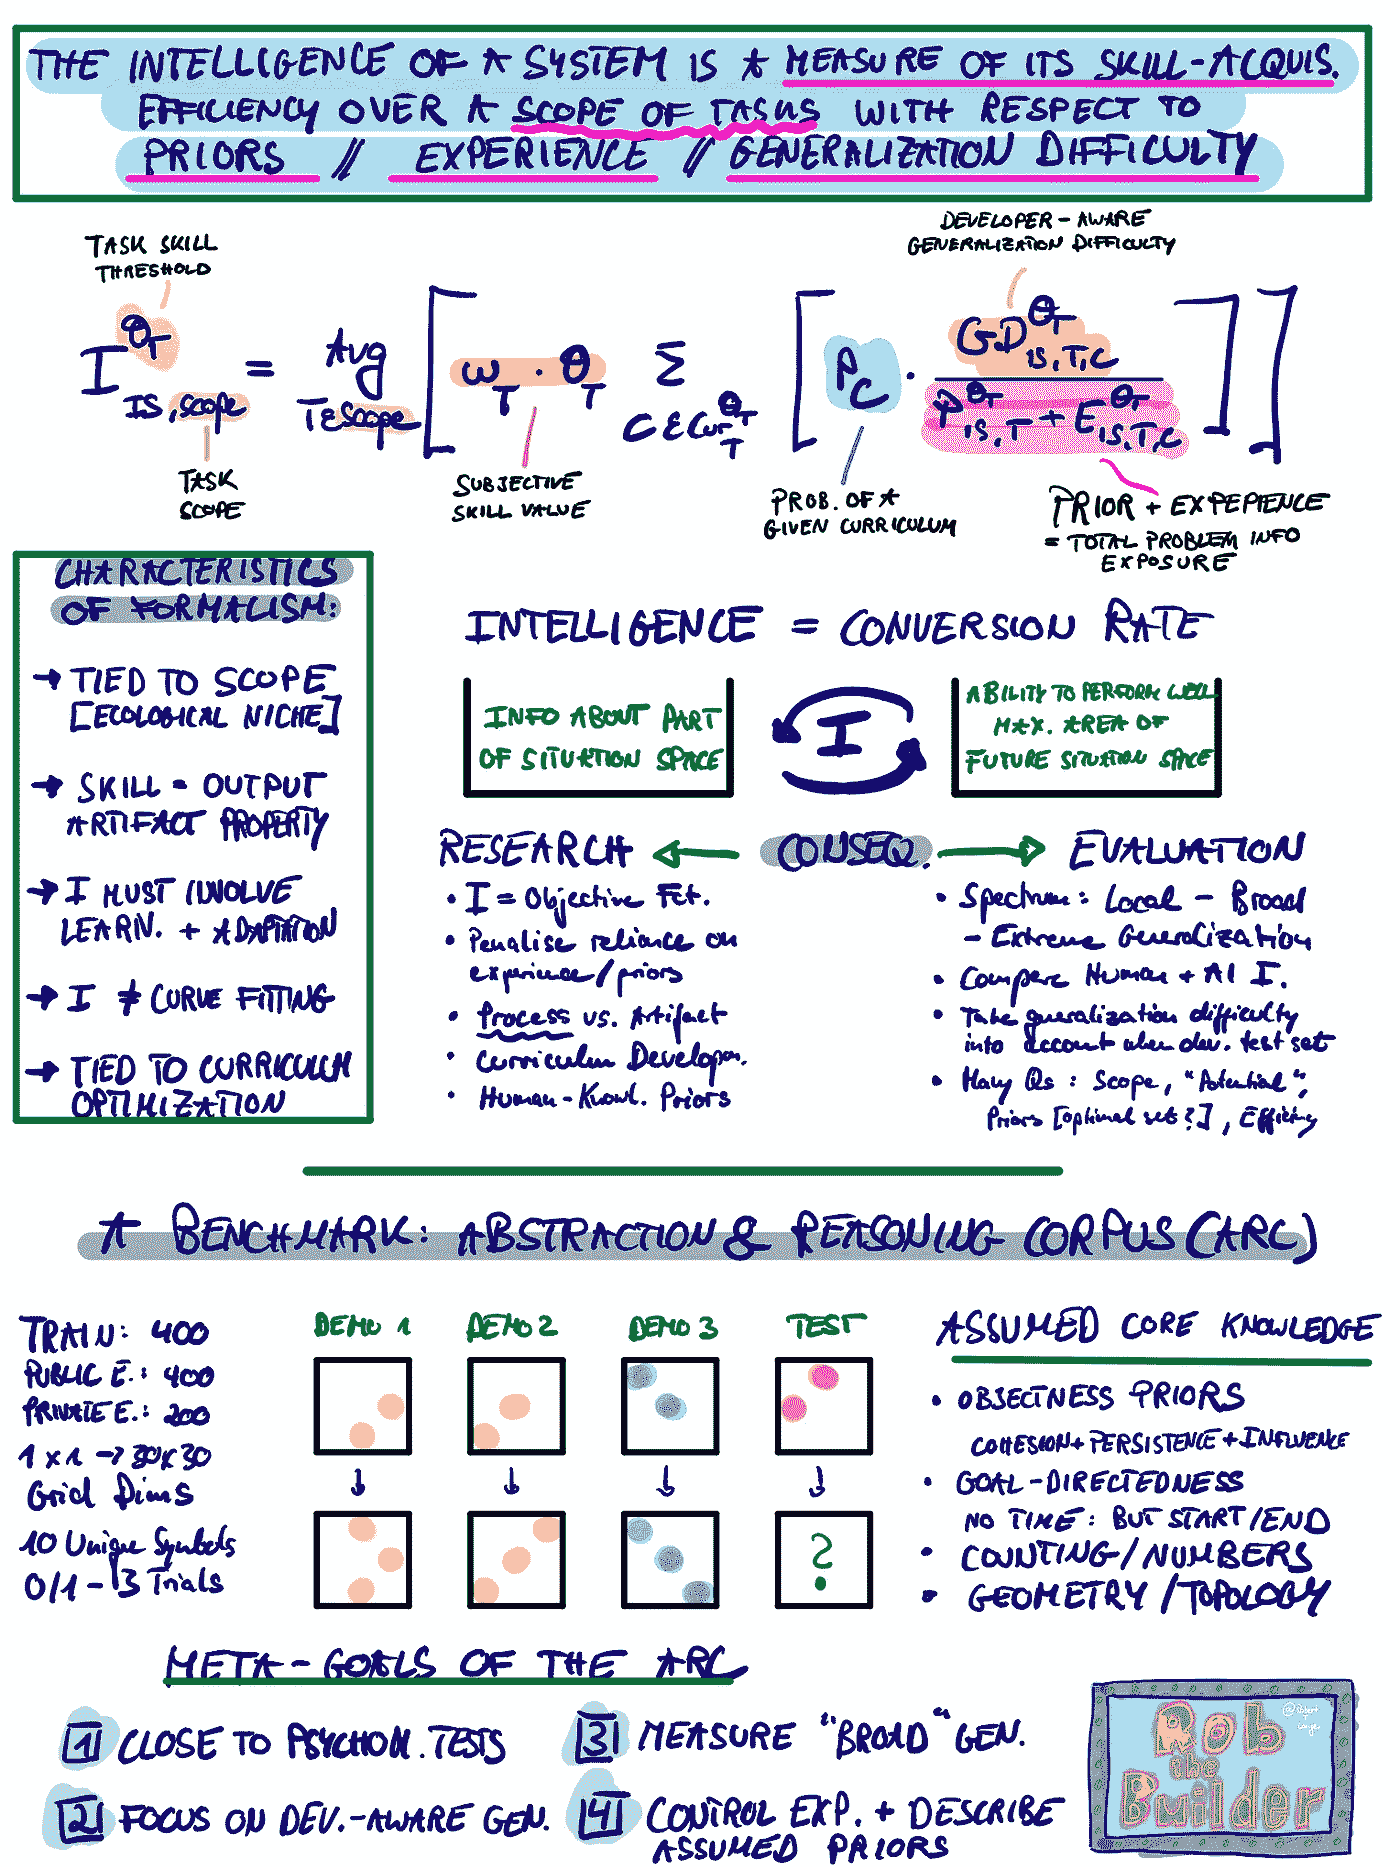 THE INTELLIGENCE OF A SYSTEM IS A MEASURE OF ITS SKILL-ACQUIS.
EFFICIENCY OVER A SCOPE OF TASKS WITH RESPECT TO
PRIORS // EXPERIENCE // GENERALIZATION DIFFICULTY
TASK SKILL
THRESHOLD
DEVELOPER-AWARE
GENERALIZATION DIFFICULTY
I^θ_T _IS,scope = Avg T∈scope [ ω_T · θ_T Σ C∈Cur_T^θ_T [ P_C · GD^θ_T _IS,T,C / P^θ_T _IS,T + E^θ_T _IS,T,C ] ]
TASK
SCOPE
SUBJECTIVE
SKILL VALUE
PROB. OF A
GIVEN CURRICULUM
PRIOR + EXPEPIENCE
= TOTAL PROBLEM INFO
EXPOSURE
CHARACTERISTICS
OF FORMALISM:
→ TIED TO SCOPE
[ECOLOGICAL NICHE]
→ SKILL = OUTPUT
ARTIFACT PROPERTY
→ I MUST INVOLVE
LEARN. + ADAPTATION
→ I ≠ CURVE FITTING
→ TIED TO CURRICULUM
OPTIMIZATION
INTELLIGENCE = CONVERSION RATE
INFO ABOUT PART
OF SITUATION SPACE
I
ABILITY TO PERFORM WELL
MAX. AREA OF
FUTURE SITUATION SPACE
RESEARCH ← CONSEQ. → EVALUATION
• I = Objective Fct.
• Penalise reliance on
experience/priors
• Process vs. Artifact
• Curriculum Develop.
• Human-Knowl. Priors
• Spectrum: Local - Broad
- Extreme Generalization
• Compare Human + AI I.
• Take generalization difficulty
into account when dev. test set
• Many Qs: Scope, "Potential",
Priors [optimal sets?], Efficiency
A BENCHMARK: ABSTRACTION & REASONING CORPUS (ARC)
TRAIN: 400
PUBLIC E.: 400
PRIVATE E.: 200
1 x 1 → 30 x 30
Grid Dims
10 Unique Symbols
0/1 - 3 Trials
DEMO 1 DEMO 2 DEMO 3 TEST
?
ASSUMED CORE KNOWLEDGE
• OBJECTNESS PRIORS
COHESION + PERSISTENCE + INFLUENCE
• GOAL-DIRECTEDNESS
NO TIME: BUT START/END
• COUNTING/NUMBERS
• GEOMETRY/TOPOLOGY
META-GOALS OF THE ARC
1 CLOSE TO PSYCHOM. TESTS
2 FOCUS ON DEV.-AWARE GEN.
3 MEASURE "BROAD" GEN.
4 CONTROL EXP. + DESCRIBE
ASSUMED PRIORS
Rob
the
Builder